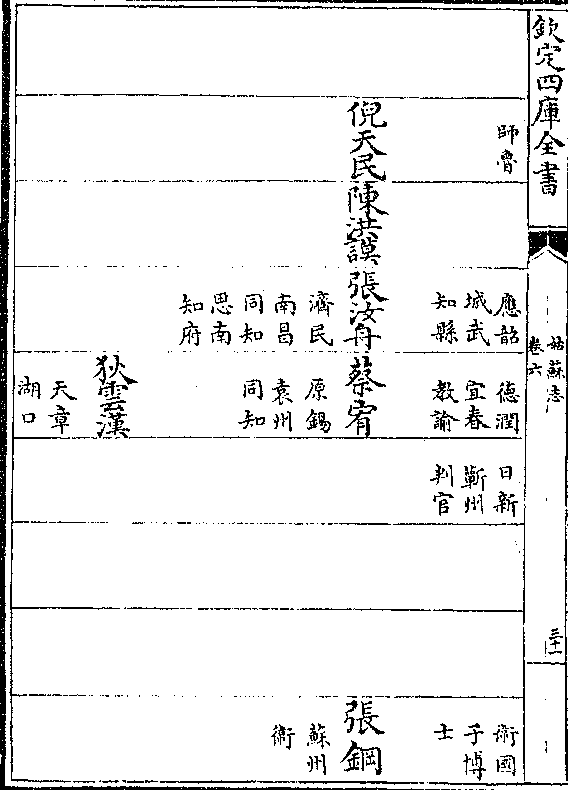 欽定四庫全書
姑蘇志
卷六
三十一
師魯
倪天民
陳洪謨
應韶
城武
知縣
張汝舟
濟民
南昌
同知
思南
知府
德潤
宜春
教諭
蔡宥
原錫
袁州
同知
狄雲漢
天章
湖口
日新
蘄州
判官
衛國
子博
士
張鋼
蘇州
衛